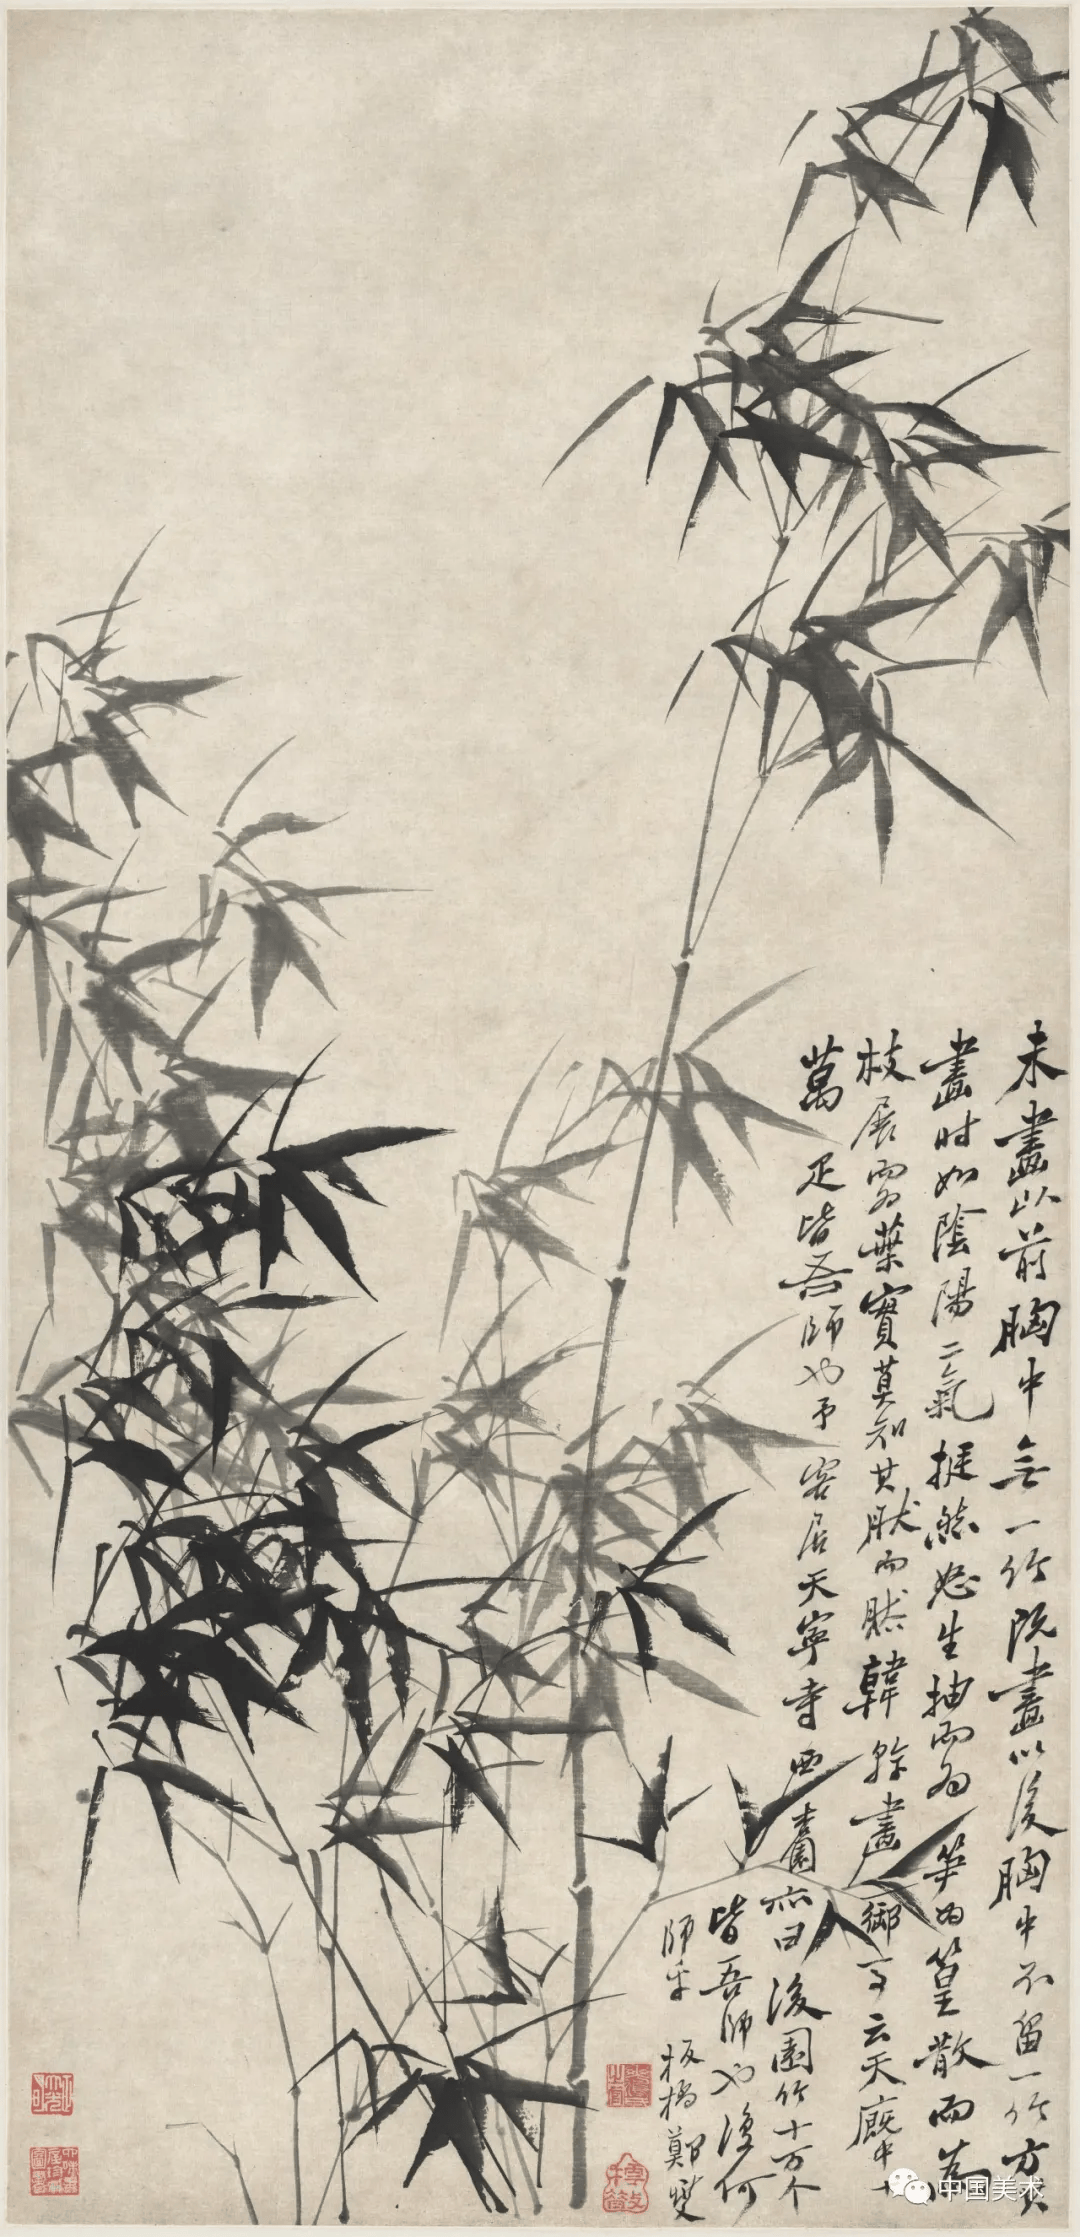 未畫以前胸中無一竹既畫以後胸中不留一竹方其
畫時如陰陽二氣挺然怒生抽而為筍為篁散而為
枝展而為葉實莫知其然而然韓幹畫御馬云天廐中十
萬疋皆吾師也予客居天寧寺西
亦曰後園竹十万个
皆吾師也復何
師乎 板橋鄭燮
中国美术